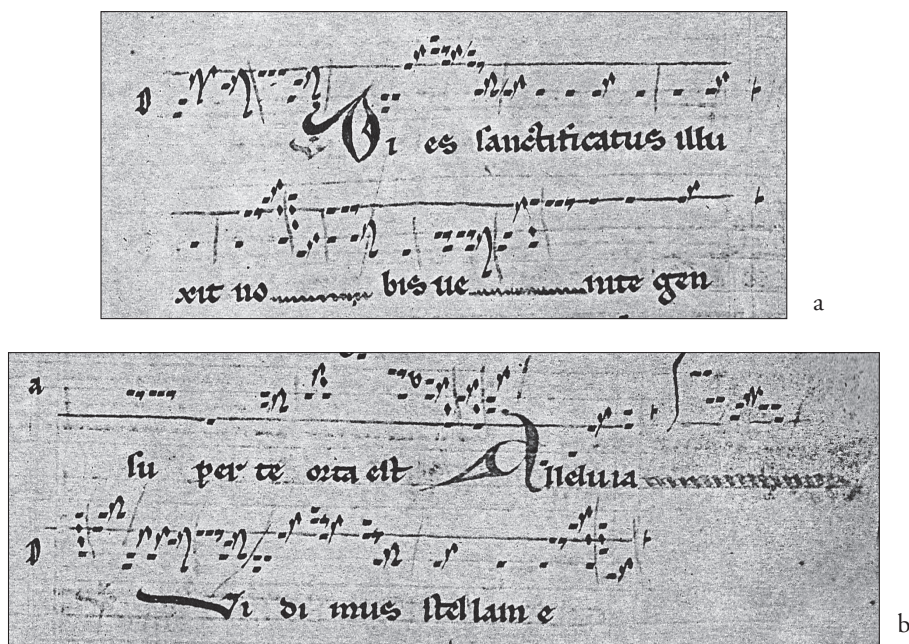 D
Di es sanctificatus illu
xit no bis ue nite gen
a
a
su per te orta est Alleluia
D
Vi di mus stellam e
b